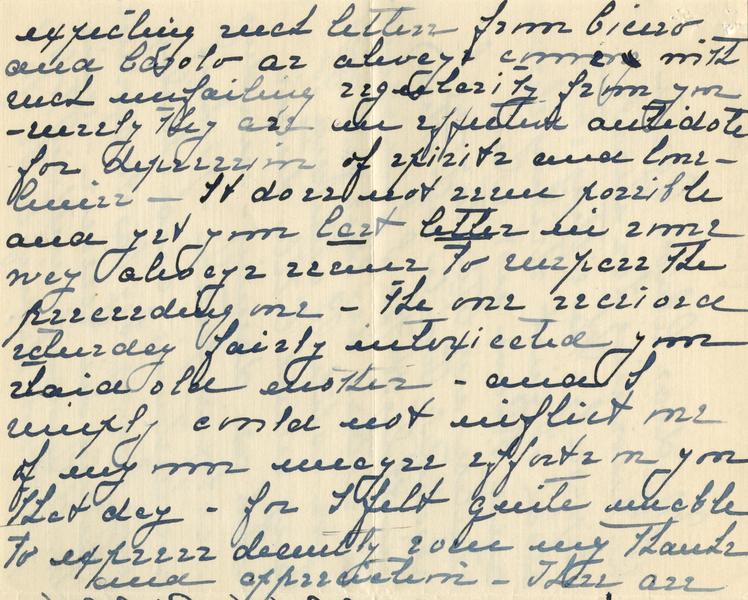 expecting such letters from Cicero
and as always comes with
such unfailing regularity from you
- surely they are an effective antidote
for depression of spirits and lone-
liness - It does not seem possible
and yet your last letter in some
way always seems to surpass the
preceeding one - The one received
saturday fairly intoxicated your
staid old mother - and I
simply could not inflict one
of my own meagre efforts on you
that day - for I felt quite unable
to express decently even my thanks
and appreciation - There are